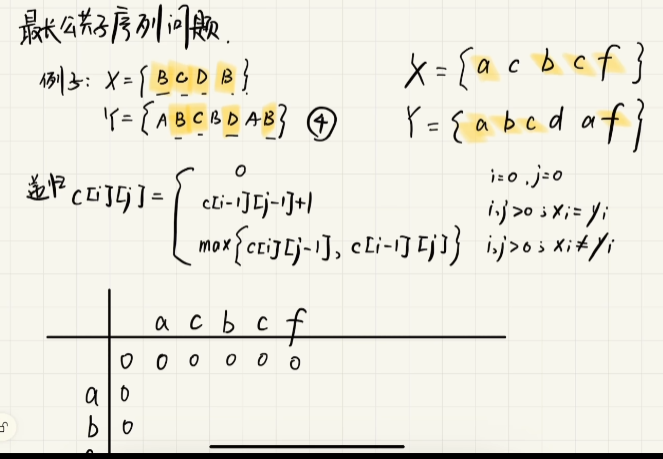 最长公共子序列问题.
例子: X={B C D B}
Y={A B C B D A B} ④
X={a c b c f}
Y={a b c d a f}
递归 c[i][j]= { 0 i=0,j=0
c[i-1][j-1]+1 i,j>0; xi=yi
max{c[i][j-1], c[i-1][j]} i,j>0; xi≠yi
a c b c f
0 0 0 0 0 0
a 0
b 0